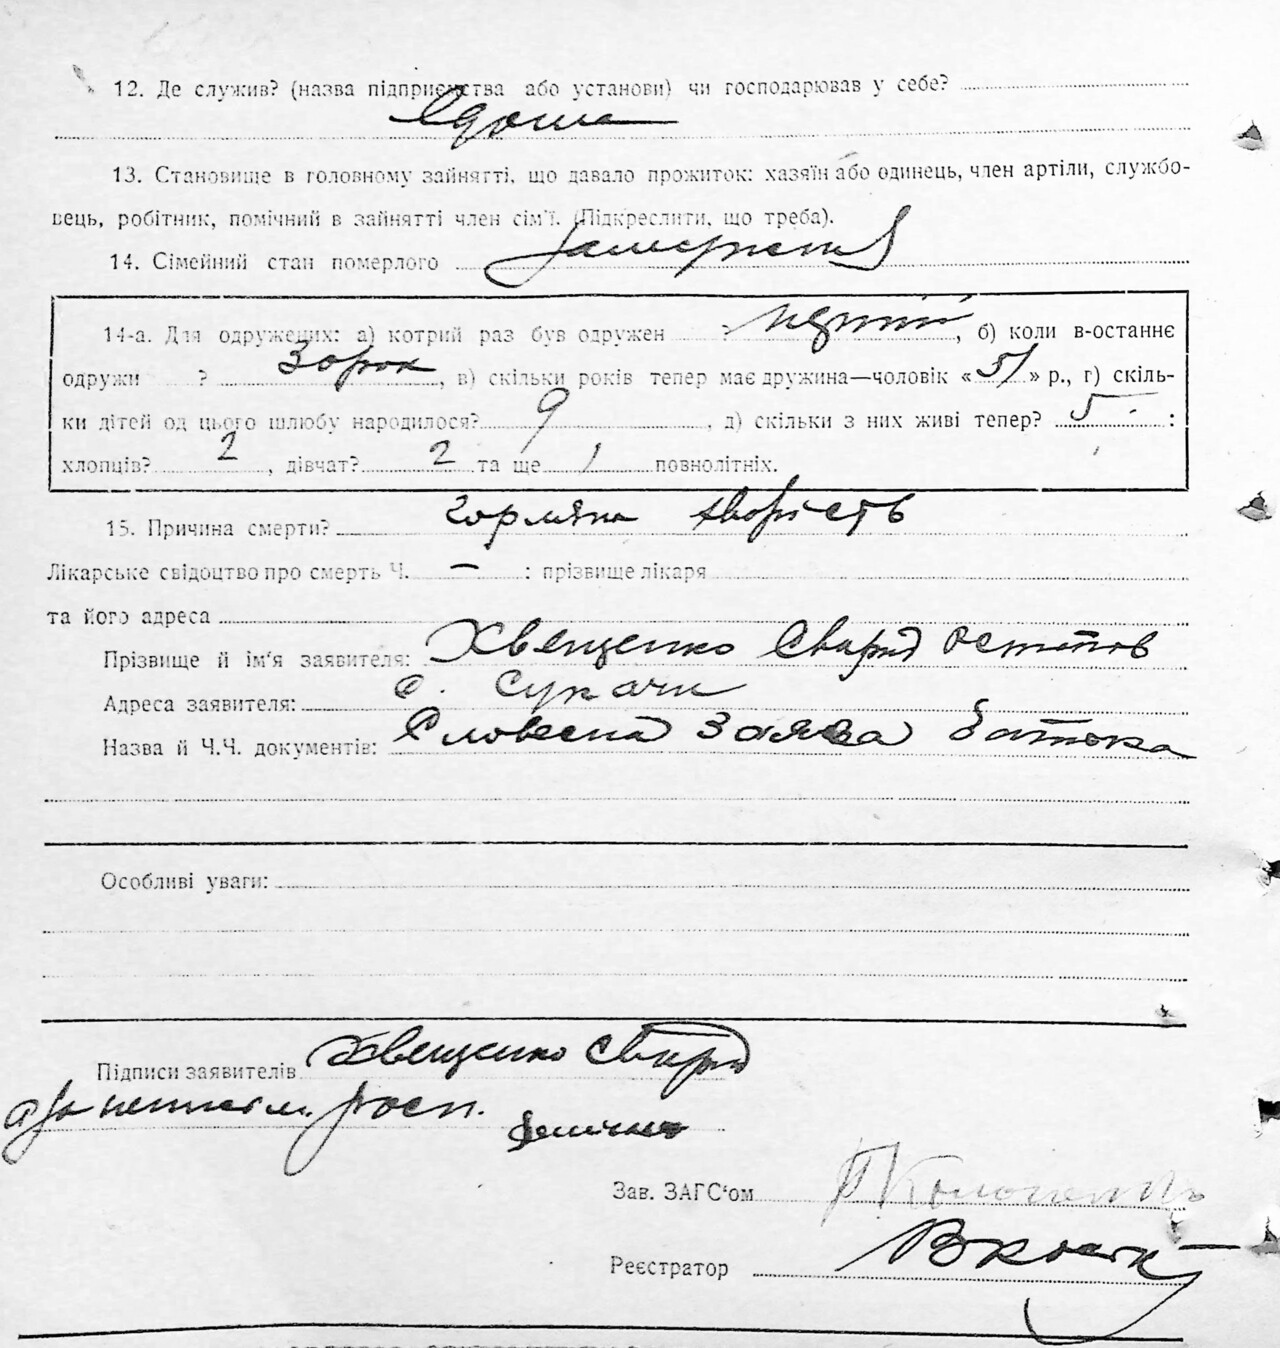 12. Де служив? (назва підприємства або установи) чи господарював у себе?
вдома
13. Становище в головному зайнятті, що давало прожиток: хазяїн або одинець, член артіли, службо-
вець, робітник, помічний в зайнятті член сім'ї. (Підкреслити, що треба).
14. Сімейний стан померлого
14-а. Для одружених: а) котрий раз був одружен ? , б) коли в-останнє
одружи ? , в) скільки років тепер має дружина—чоловік « 51 » р., г) скіль-
ки дітей од цього шлюбу народилося? 9 , д) скільки з них живі тепер? 5 :
хлопців? 2 , дівчат? 2 та ще 1 повнолітніх.
15. Причина смерти? горляна хворість
Лікарське свідоцтво про смерть Ч. — : прізвище лікаря
та його адреса
Прізвище й ім'я заявителя: Хвещенко Свирид Остапов
Адреса заявителя: с. Сукачи
Назва й Ч.Ч. документів: Словесна заява батька
Особливі уваги:
Підписи заявителів Хвещенко Свирид
а за неписьм. росп.
Зав. ЗАГС'ом
Реєстратор